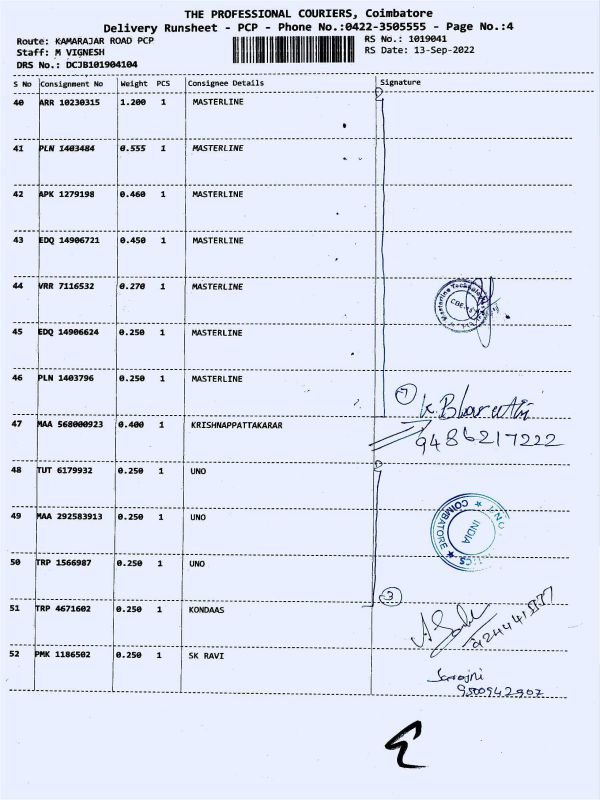 THE PROFESSIONAL COURIERS, Coimbatore
Delivery Runsheet - PCP - Phone No.:0422-3505555 - Page No.:4
Route: KAMARAJAR ROAD PCP
Staff: M VIGNESH
DRS No.: DCJB101904104
RS No.: 1019041
RS Date: 13-Sep-2022
S No Consignment No Weight PCS Consignee Details Signature
40 ARR 10230315 1.200 1 MASTERLINE
41 PLN 1403484 0.555 1 MASTERLINE
42 APK 1279198 0.460 1 MASTERLINE
43 EDQ 14906721 0.450 1 MASTERLINE
44 VRR 7116532 0.270 1 MASTERLINE
Masterline Technolog
CBE
45 EDQ 14906624 0.250 1 MASTERLINE
46 PLN 1403796 0.250 1 MASTERLINE
7
K Bharathi
47 MAA 568000923 0.400 1 KRISHNAPPATTAKARAR
9486217222
48 TUT 6179932 0.250 1 UNO
49 MAA 292583913 0.250 1 UNO
UNO
COIMBATORE
INDIA
50 TRP 1566987 0.250 1 UNO
3
51 TRP 4671602 0.250 1 KONDAAS
52 PMK 1186502 0.250 1 SK RAVI
Sarojni
9500942907